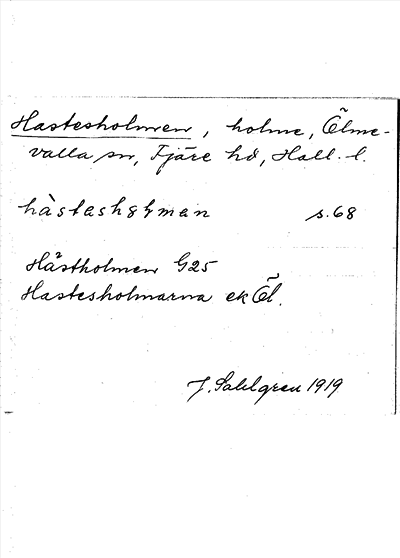 Hastesholmen, holme, Ölme-
valla sn, Fjäre hd, Hall. l.
hàstashɤɫman s. 68
Hästholmen G25
Hastesholmarna ek Öl.
J. Sahlgren 1919